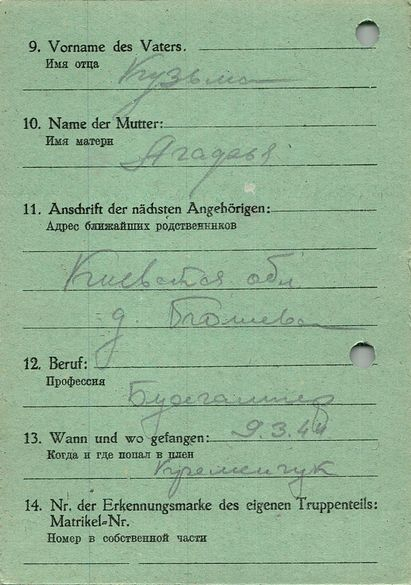 9. Vorname des Vaters.
Имя отца
Кузьма
10. Name der Mutter:
Имя матери
11. Anschrift der nächsten Angehörigen:
Адрес ближайших родственников
Киевская обл
д.
12. Beruf:
Профессия
Бухгалтер
13. Wann und wo gefangen: 9.3.44
Когда и где попал в плен
Кременчук
14. Nr. der Erkennungsmarke des eigenen Truppenteils:
Matrikel=Nr.
Номер в собственной части